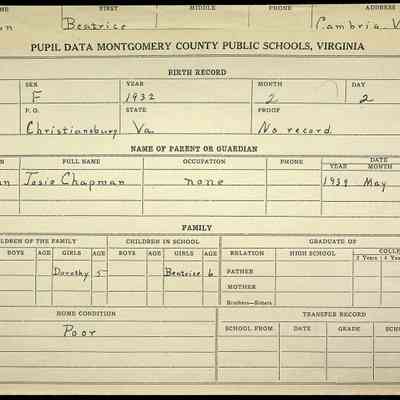 FIRST MIDDLE PHONE ADDRESS
on Beatrice Cambria, V
PUPIL DATA MONTGOMERY COUNTY PUBLIC SCHOOLS, VIRGINIA
BIRTH RECORD
SEX YEAR MONTH DAY
F 1932 2 2
P. O. STATE PROOF
Christiansburg Va. No record
NAME OF PARENT OR GUARDIAN
FULL NAME OCCUPATION PHONE DATE
YEAR MONTH
an Josie Chapman none 1939 May
FAMILY
CHILDREN OF THE FAMILY CHILDREN IN SCHOOL GRADUATE OF
BOYS AGE GIRLS AGE BOYS AGE GIRLS AGE RELATION HIGH SCHOOL COLLE
2 Years 4 Yea
Dorothy 5 Beatrice 6 FATHER
MOTHER
Brothers—Sisters
HOME CONDITION TRANSFER RECORD
Poor SCHOOL FROM DATE GRADE SCHO